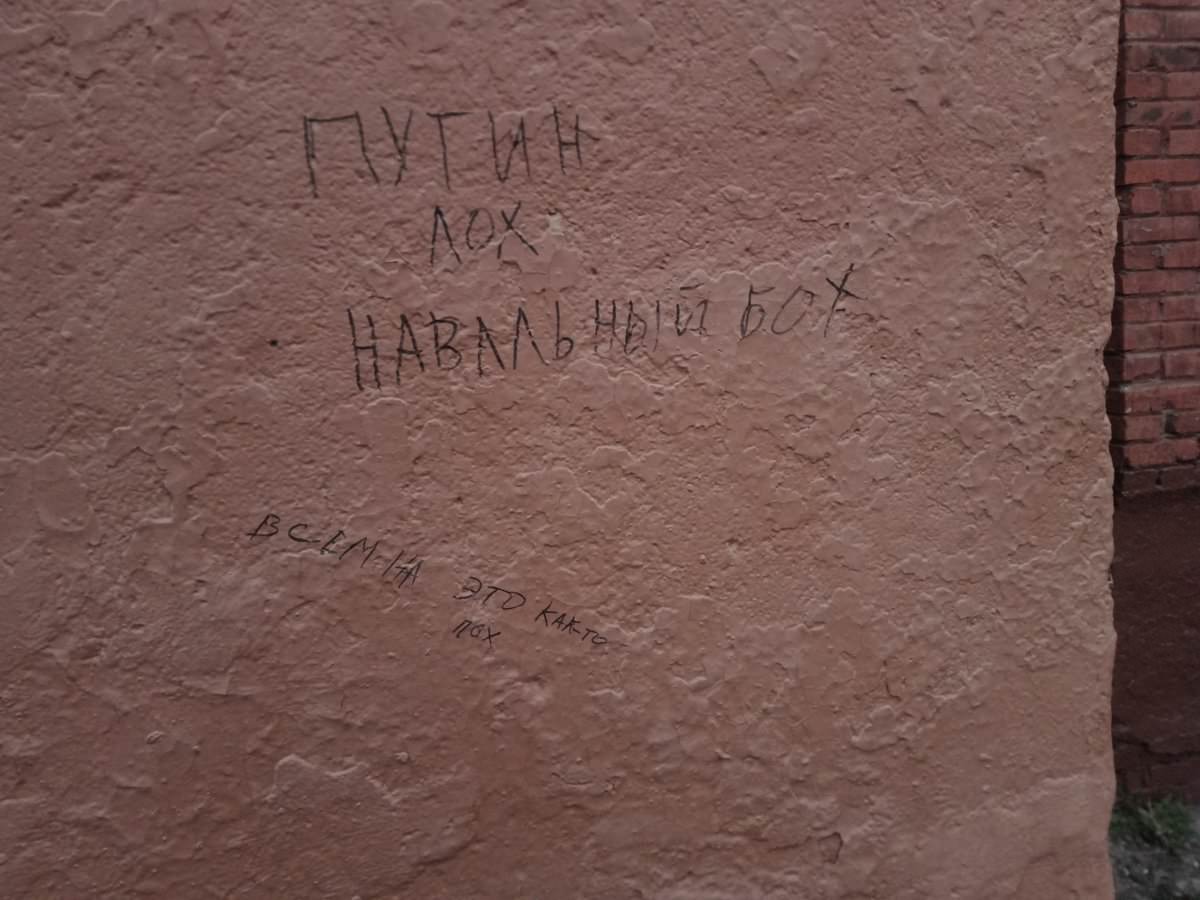 ПУТИН
ЛОХ
НАВАЛЬНЫЙ БОХ
ВСЕМ-НА ЭТО КАК-ТО
ПОХ